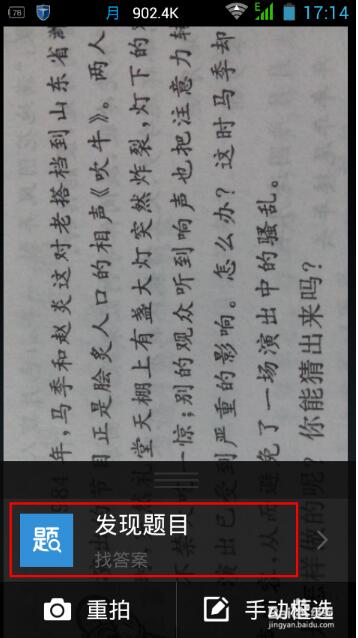 78 月 902.4K E 17:14
984年,马季和赵炎这对老搭档到山东省
的节目正是脍炙人口的相声《吹牛》。两人
然礼堂天棚上有盏大灯突然炸裂,灯下的
不禁大吃一惊;别的观众听到响声也把注意力转
演出已受到严重的影响。怎么办?这时马季却
,从而避免了一场演出中的骚乱。
样做的呢?你能猜出来吗?
题
发现题目
找答案
重拍
手动框选
jingyan.baidu.com